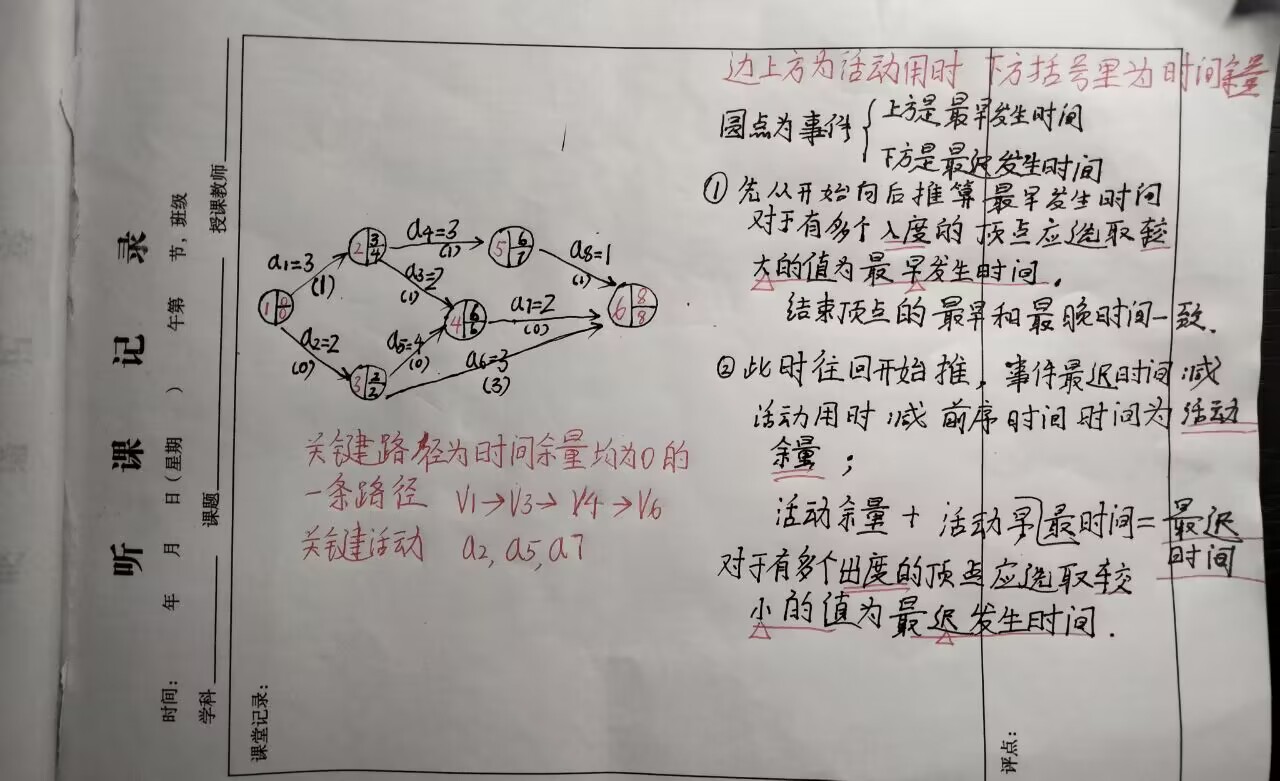 听 课 记 录
时间： 年 月 日（星期 ） 午第 节，班级
学科 课题 授课教师
课堂记录：
评点：
边上方为活动用时 下方括号里为时间余量
圆点为事件
上方是最早发生时间
下方是最迟发生时间
① 先从开始向后推算最早发生时间
对于有多个入度的顶点应选取较
大的值为最早发生时间.
结束顶点的最早和最晚时间一致.
② 此时往回开始推，事件最迟时间减
活动用时减前序时间时间为活动
余量；
活动余量+活动早最时间=最迟
时间
对于有多个出度的顶点应选取较
小的值为最迟发生时间.
a1=3
(1)
a2=2
(0)
a4=3
(1)
a3=2
(1)
a5=4
(0)
a8=1
(1)
a7=2
(0)
a6=3
(3)
1 0 0
2 3 4
3 2 2
4 6 6
5 6 7
6 8 8
关键路径为时间余量均为0的
一条路径 V1→V3→V4→V6
关键活动 a2, a5, a7